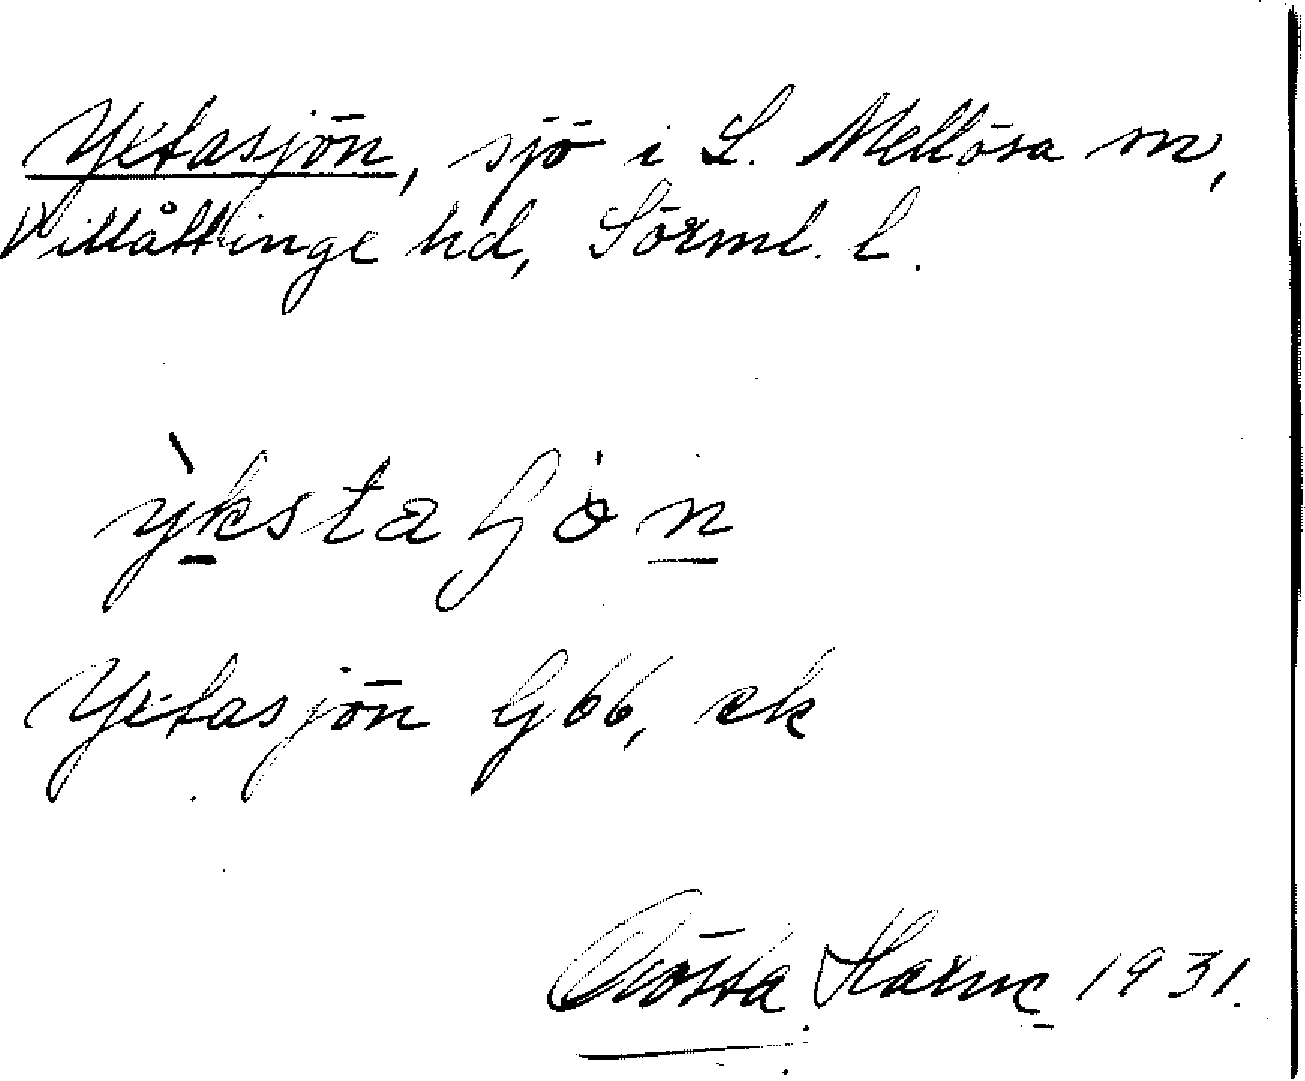 Yxtasjön, sjö i L. Mellösa sn,
Villåttinge hd, Sörml. l.
Yxtasjön G66, ek
Gösta 1931.